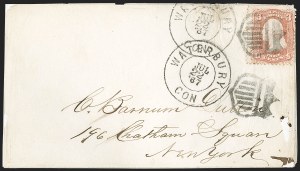 WATERBURY
CON.
JUL
22
67
WATERBURY
CON.
JUL
22
67
C. Barnum
196 Chatham Square
New York